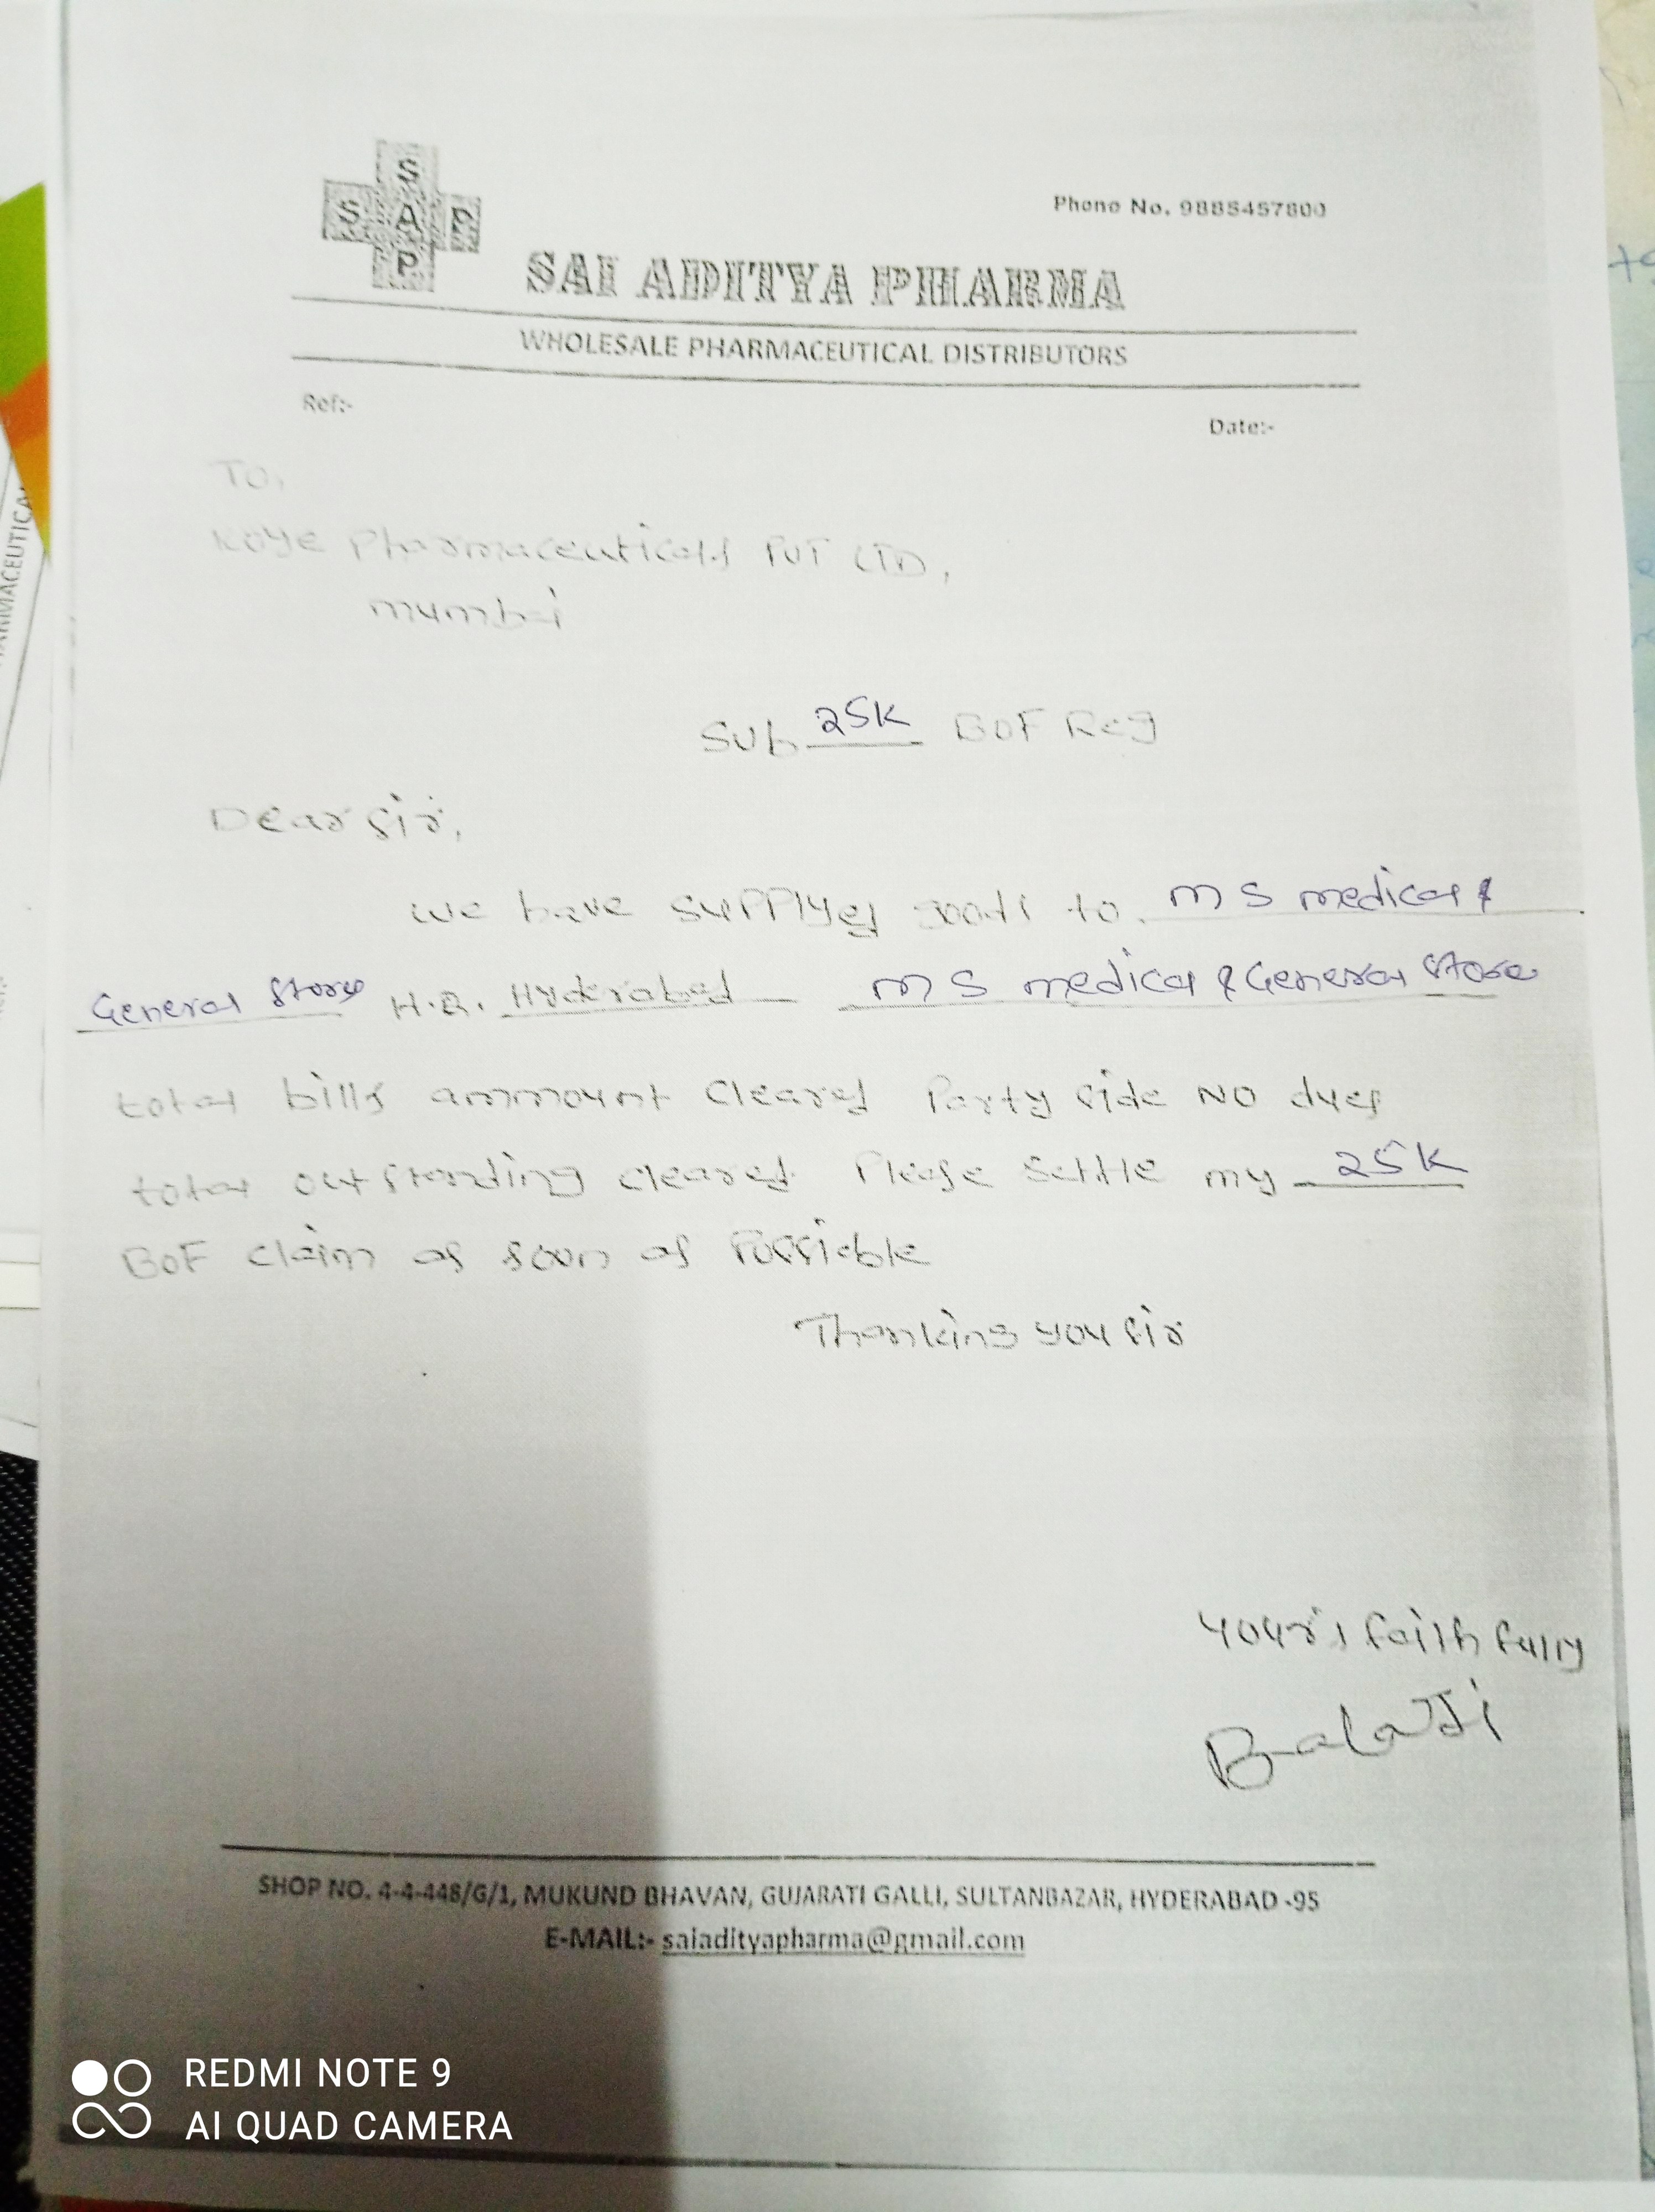 S
S A P
P
Phone No. 9885457800
SAI ADITYA PHARMA
WHOLESALE PHARMACEUTICAL DISTRIBUTORS
Ref:-
Date:-
To,
Koye Pharmaceuticals PVT LTD,
mumbai
Sub 25K BOF Reg
Dear Sir,
we have supplyed goods to. M S medical &
General Store H.Q. Hyderabad M S medical & General Store
total bills ammount Cleared Party side NO dues
total outstanding cleared Please settle my 25K
BOF claim as soon as Possiable
Thanking you sir
your's faithfully
BalaJi
SHOP NO. 4-4-448/G/1, MUKUND BHAVAN, GUJARATI GALLI, SULTANBAZAR, HYDERABAD -95
E-MAIL:- saiadityapharma@gmail.com
REDMI NOTE 9
AI QUAD CAMERA